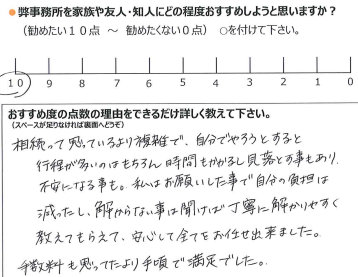 ●弊事務所を家族や友人・知人にどの程度おすすめしようと思いますか？
（勧めたい１０点　～　勧めたくない０点）　○を付けて下さい。
10 9 8 7 6 5 4 3 2 1 0
おすすめ度の点数の理由をできるだけ詳しく教えて下さい。
（スペースが足りなければ裏面へどうぞ）
相続って思っているより複雑で、自分でやろうとすると
行程が多いのはもちろん時間もかかるし見落とす事もあり、
不安になる事も。私はお願いした事で自分の負担は
減ったし、解からない事は聞けば丁寧に解かりやすく
教えてもらえて、安心して全てをお任せ出来ました。
手数料も思ってたより手頃で満足でした。